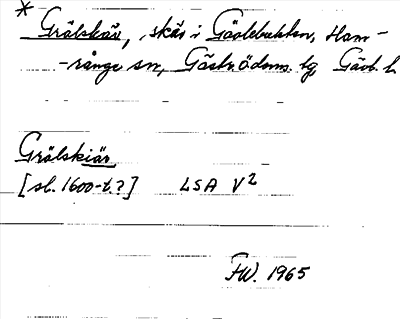 * Grälskär, skär i Gävlebukten, Ham-
-rånge sn, Gästr. ödms. tg Gävl. l.
Grälskiär
[sl. 1600-t.?] LSA V²
FW. 1965